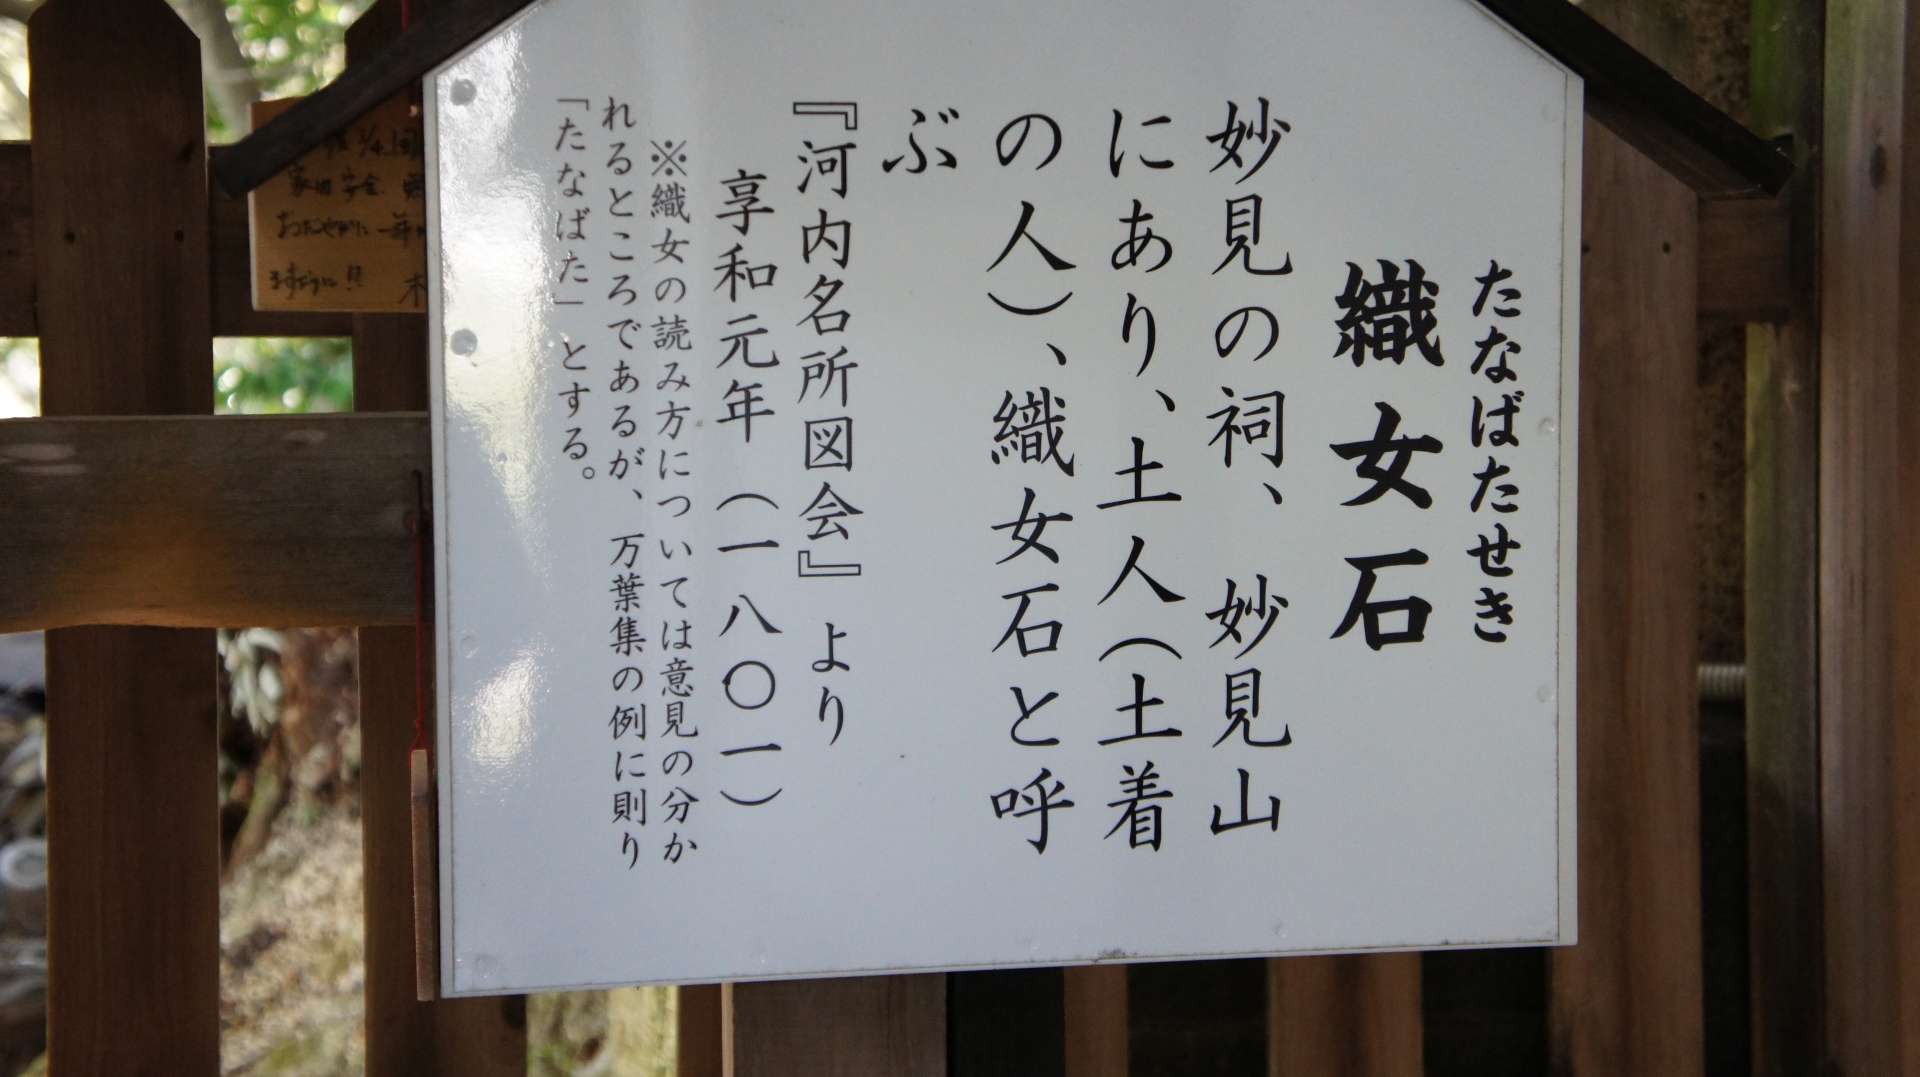 たなばたせき
織女石
妙見の祠、妙見山
にあり、土人（土着
の人）、織女石と呼
ぶ
『河内名所図会』より
享和元年（一八〇一）
※織女の読み方については意見の分か
れるところであるが、万葉集の例に則り
「たなばた」とする。
安全